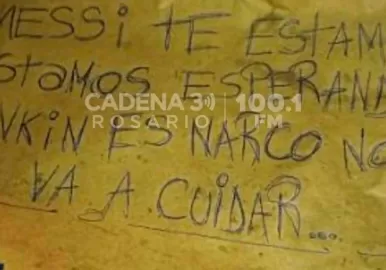 MESSI TE ESTAM
STAMOS ESPERAN
CADENA 3 100.1
ROSARIO FM
VKIN ES NARCO NO
VA A CUIDAR...